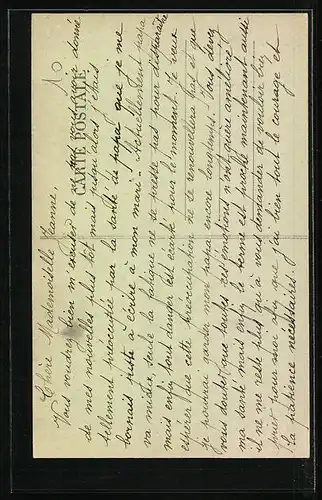 CARTE POSTALE
Chère Mademoiselle Jeanne,
Vous voudrez bien m'excuser de ne pas vous avoir donné
de mes nouvelles plus tôt mais jusqu'alors j'étais
tellement préoccupée par la santé de papa que je me
bornais juste à écrire à mon mari. Actuellement papa
va mieux seule la fatigue ne se presse pas pour disparaître
mais enfin tout danger est écarté pour le moment. Je veux
espérer que cette préoccupation ne se renouvellera pas et que
je pourrai garder mon papa encore longtemps. Vous devez
vous douter que toutes ces émotions n'ont guère amélioré
ma santé mais enfin le terme est proche maintenant aussi
il ne me reste plus qu'à vous demander de vouloir bien
prier pour moi afin que j'ai bien tout le courage et
la patience nécessaires.